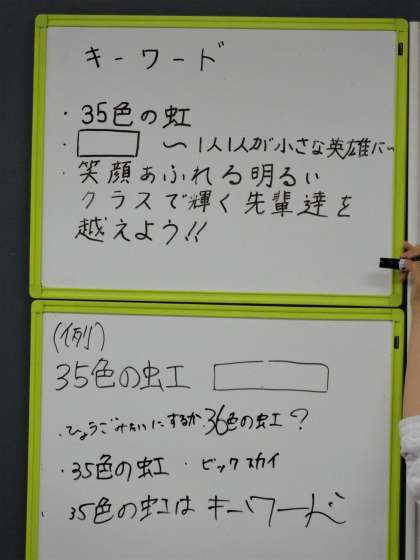 キーワード
・35色の虹
・　　　～1人1人が小さな英雄だ～
・笑顔あふれる明るい
クラスで輝く先輩達を
越えよう!!
(例)
35色の虹
・ひょうごみたいにするか 36色の虹?
・35色の虹 ・ビックスカイ
・35色の虹はキーワード